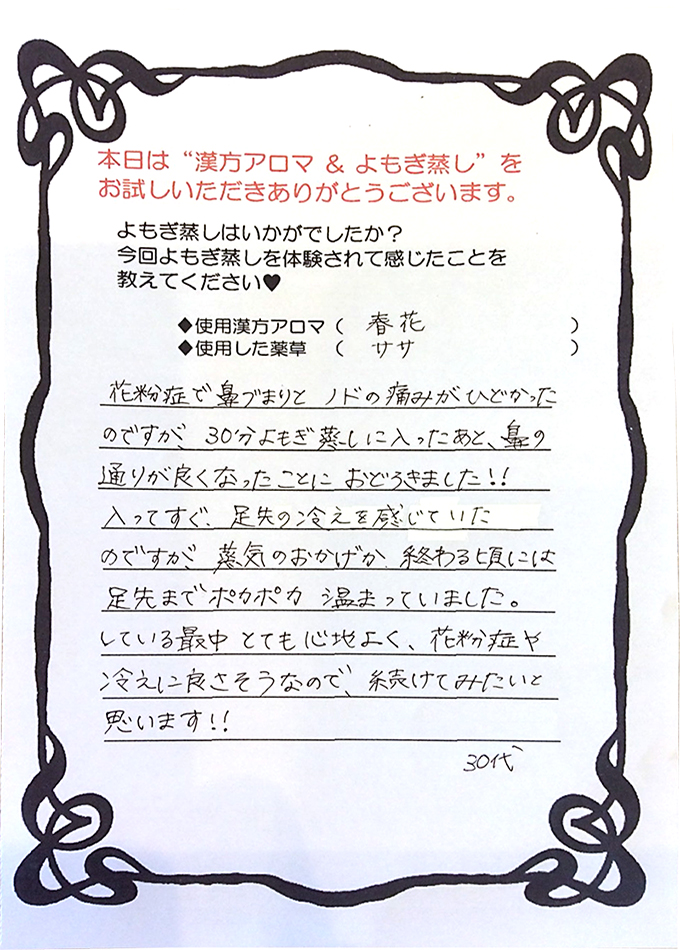 本日は“漢方アロマ & よもぎ蒸し”を
お試しいただきありがとうございます。
よもぎ蒸しはいかがでしたか？
今回よもぎ蒸しを体験されて感じたことを
教えてください♥
◆使用漢方アロマ（ 春花 ）
◆使用した薬草 （ ササ ）
花粉症で鼻づまりと ノドの痛みがひどかった
のですが、30分よもぎ蒸しに入ったあと、鼻の
通りが良くなったことに おどろきました!!
入ってすぐ、足先の冷えを感じていた
のですが 蒸気のおかげか、終わる頃には
足先までポカポカ 温まっていました。
している最中 とても心地よく、花粉症や
冷えに良さそうなので、続けてみたいと
思います!!
30代